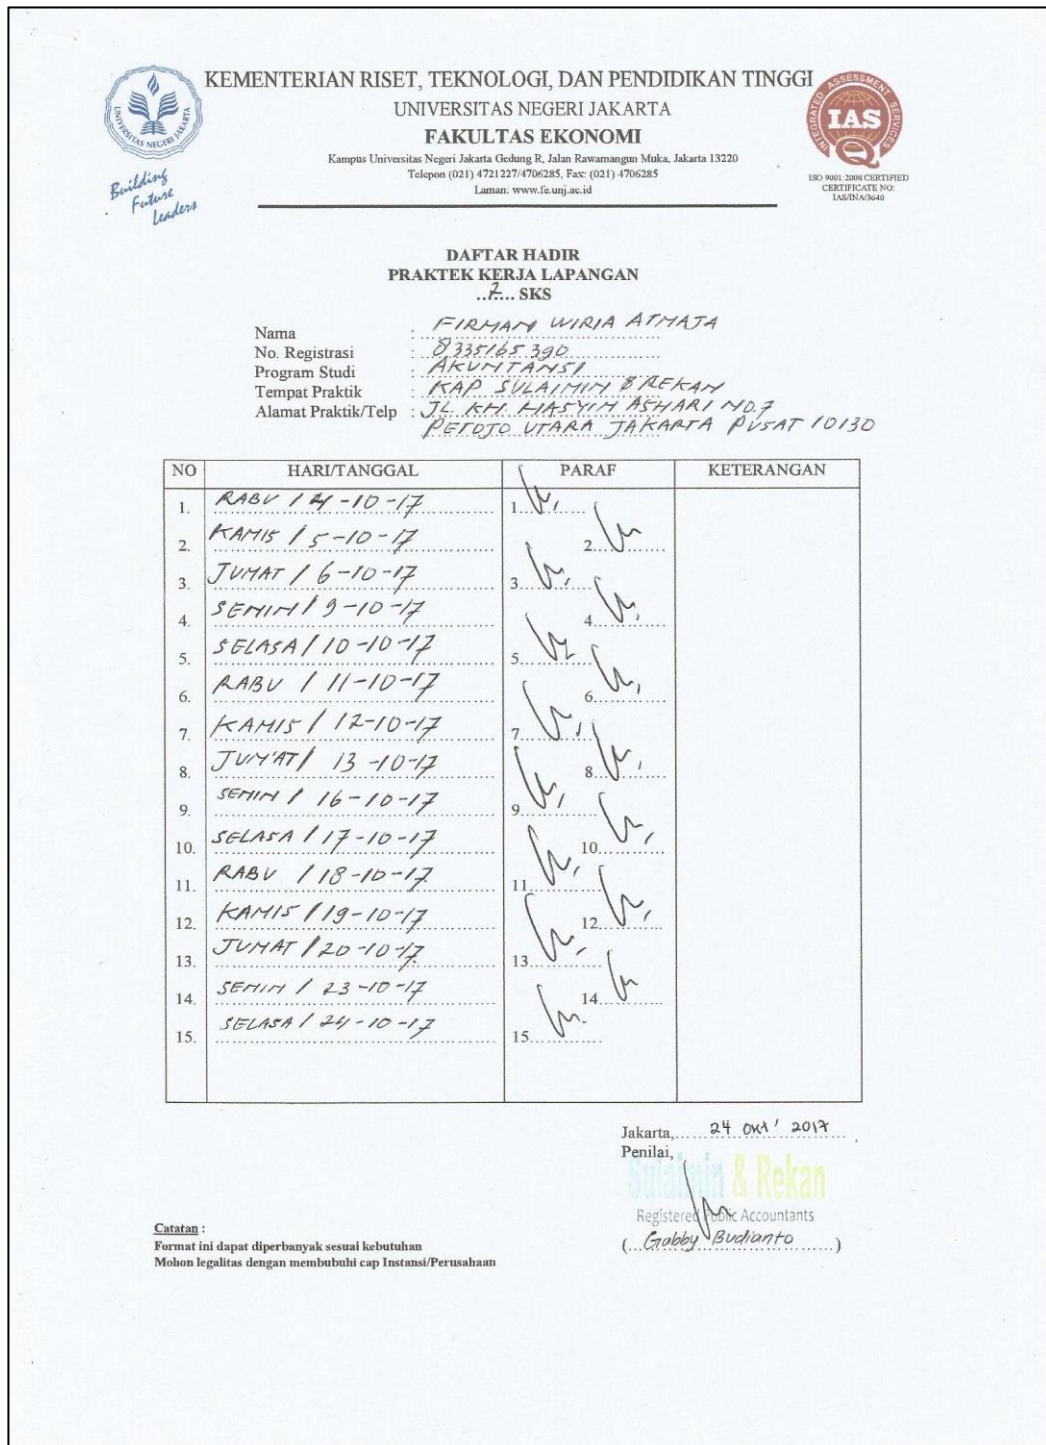 KEMENTERIAN RISET, TEKNOLOGI, DAN PENDIDIKAN TINGGI
UNIVERSITAS NEGERI JAKARTA
FAKULTAS EKONOMI
Kampus Universitas Negeri Jakarta Gedung R, Jalan Rawamangun Muka, Jakarta 13220
Telepon (021) 4721227/4706285, Fax: (021) 4706285
Laman: www.fe.unj.ac.id
UNIVERSITAS NEGERI JAKARTA
Building
Future
Leaders
INTEGRATED ASSESSMENT SERVICES
IAS
ISO 9001:2008 CERTIFIED
CERTIFICATE NO:
IAS/INA/3640
DAFTAR HADIR
PRAKTEK KERJA LAPANGAN
..2.... SKS
Nama : FIRMAN WIRIA ATMAJA
No. Registrasi : 8335165390
Program Studi : AKUNTANSI
Tempat Praktik : KAP SULAIMIN & REKAN
Alamat Praktik/Telp : JL. KH. HASYIM ASHARI NO.7
PETOJO UTARA JAKARTA PUSAT 10130
NO HARI/TANGGAL PARAF KETERANGAN
1. RABU / 4-10-17 1
2. KAMIS / 5-10-17 2
3. JUMAT / 6-10-17 3
4. SENIN / 9-10-17 4
5. SELASA / 10-10-17 5
6. RABU / 11-10-17 6
7. KAMIS / 12-10-17 7
8. JUM'AT / 13-10-17 8
9. SENIN / 16-10-17 9
10. SELASA / 17-10-17 10
11. RABU / 18-10-17 11
12. KAMIS / 19-10-17 12
13. JUMAT / 20-10-17 13
14. SENIN / 23-10-17 14
15. SELASA / 24-10-17 15
Jakarta, 24 Okt' 2017
Penilai,
Sulaimin & Rekan
Registered Public Accountants
(Gabby Budianto)
Catatan :
Format ini dapat diperbanyak sesuai kebutuhan
Mohon legalitas dengan membubuhi cap Instansi/Perusahaan